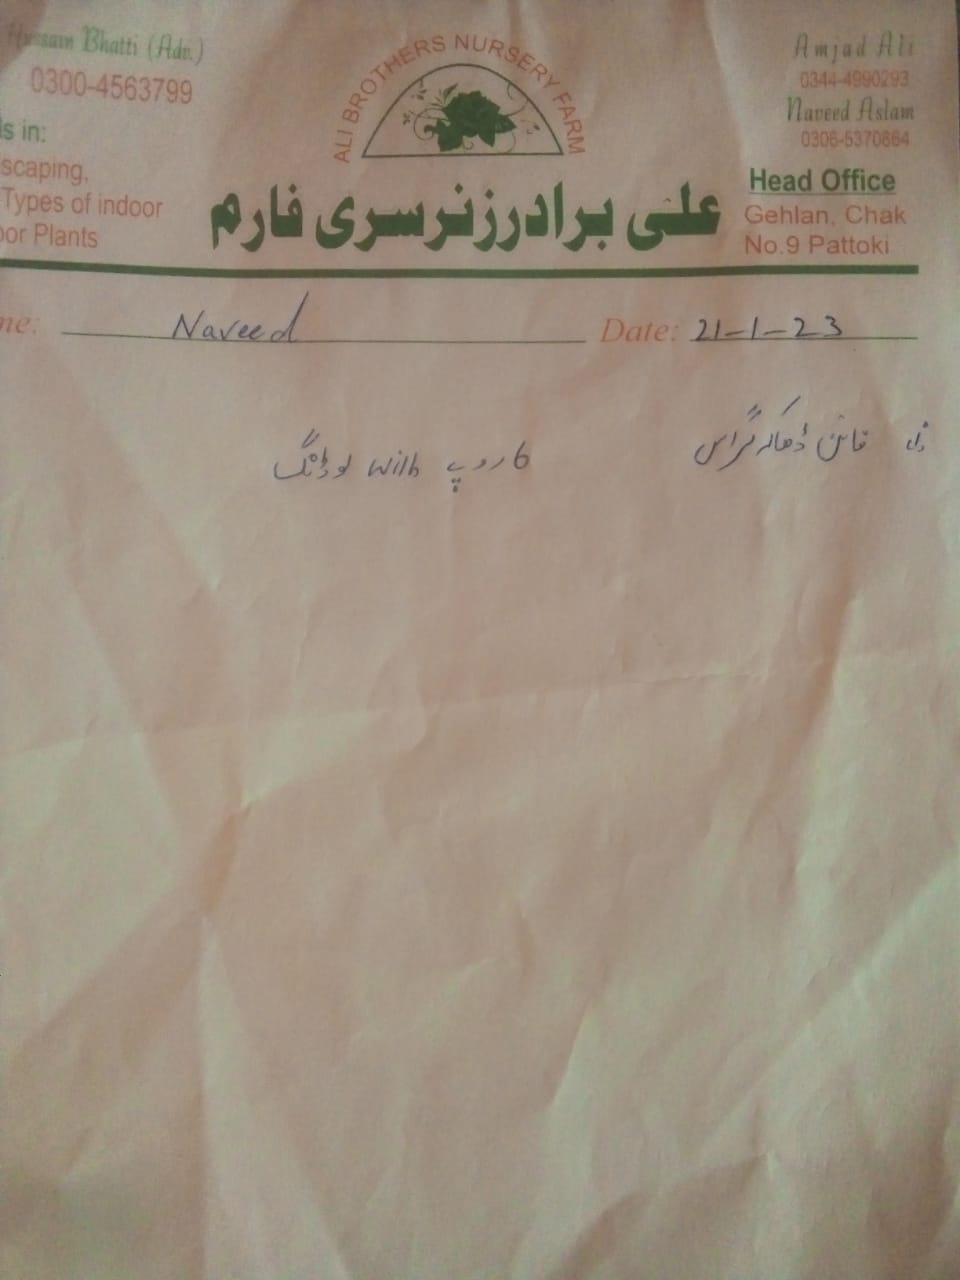 Hussam Bhatti (Adv.)
0300-4563799
ls in:
scaping,
Types of indoor
oor Plants
ALI BROTHERS NURSERY FARM
علی برادرز نرسری فارم
Amjad Ali
0344-4990293
Naveed Aslam
0306-5370864
Head Office
Gehlan, Chak
No.9 Pattoki
me: Naveed Date: 21-1-23
فائن ڈھاکہ گراس
6 روپے with لوڈنگ